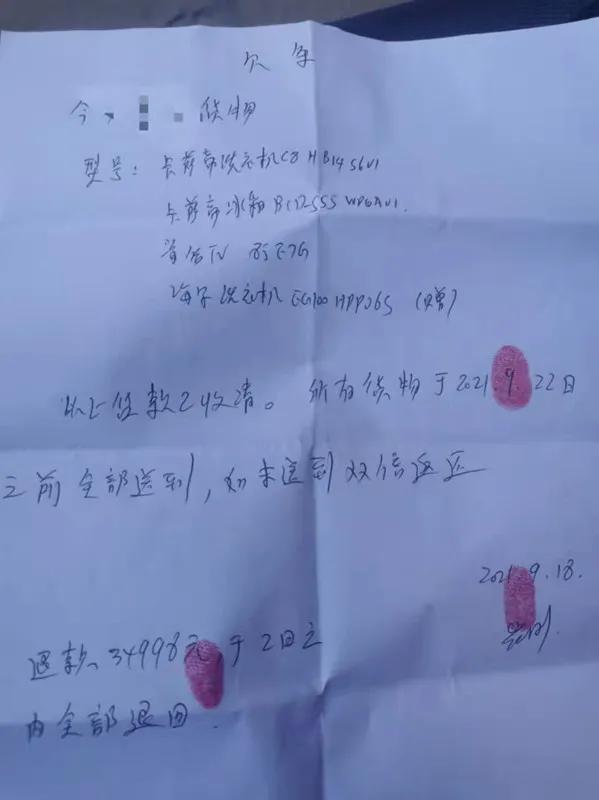 欠条
今 货物
型号：卡萨帝洗衣机C8 HB14S6U1
卡萨帝冰箱BCD-555
海信TV 85E7G
海尔洗衣机EG100HPRO6S（赠）
以上货款已收清。所有货物于2021.9.22日
之前全部送到，如未送到双倍返还
2021.9.18.
退款34998元，于2日之
内全部退回.